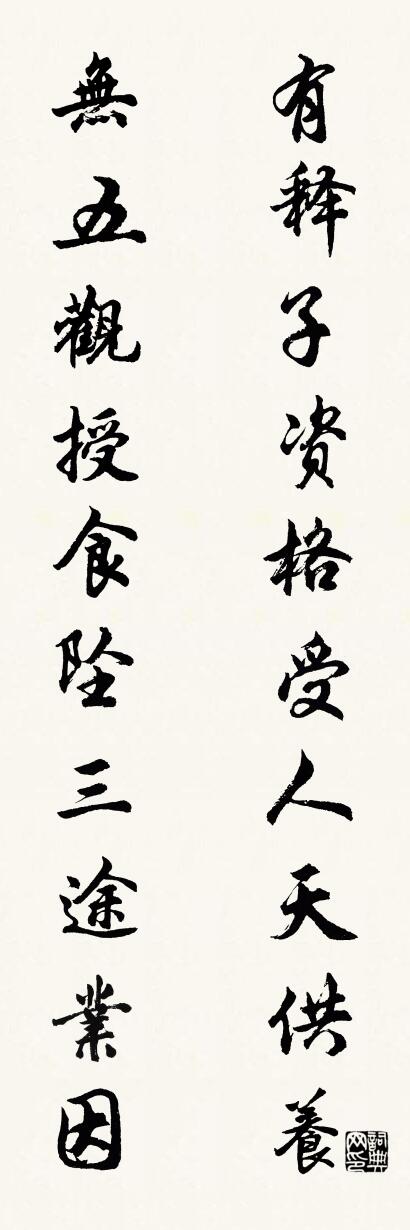 有释子资格受人天供養
無五觀授食坠三途業因
詞典網印